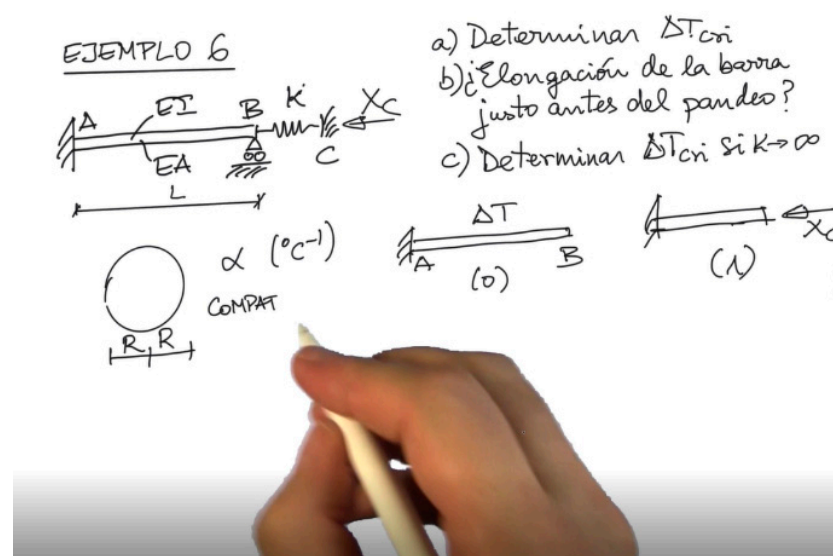 EJEMPLO 6
a) Determinar ΔTcri
b) ¿Elongación de la barra
justo antes del pandeo?
c) Determinar ΔTcri si K→∞
A EI B K Xc
EA C
L
α (°C⁻¹)
ΔT
A B
(0)
(1)
Xc
COMPAT
R R